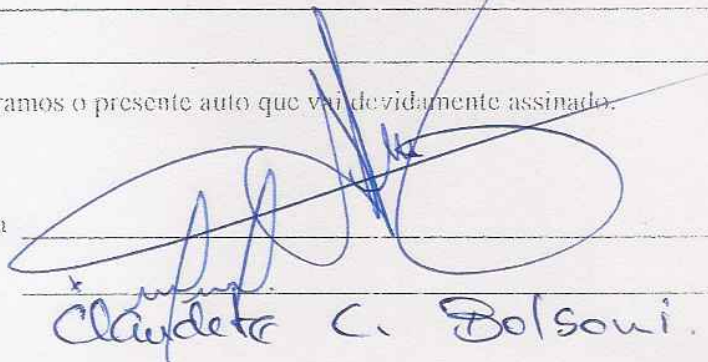 ramos o presente auto que vai devidamente assinado.
a
x
Claudete C. Bolsoni.